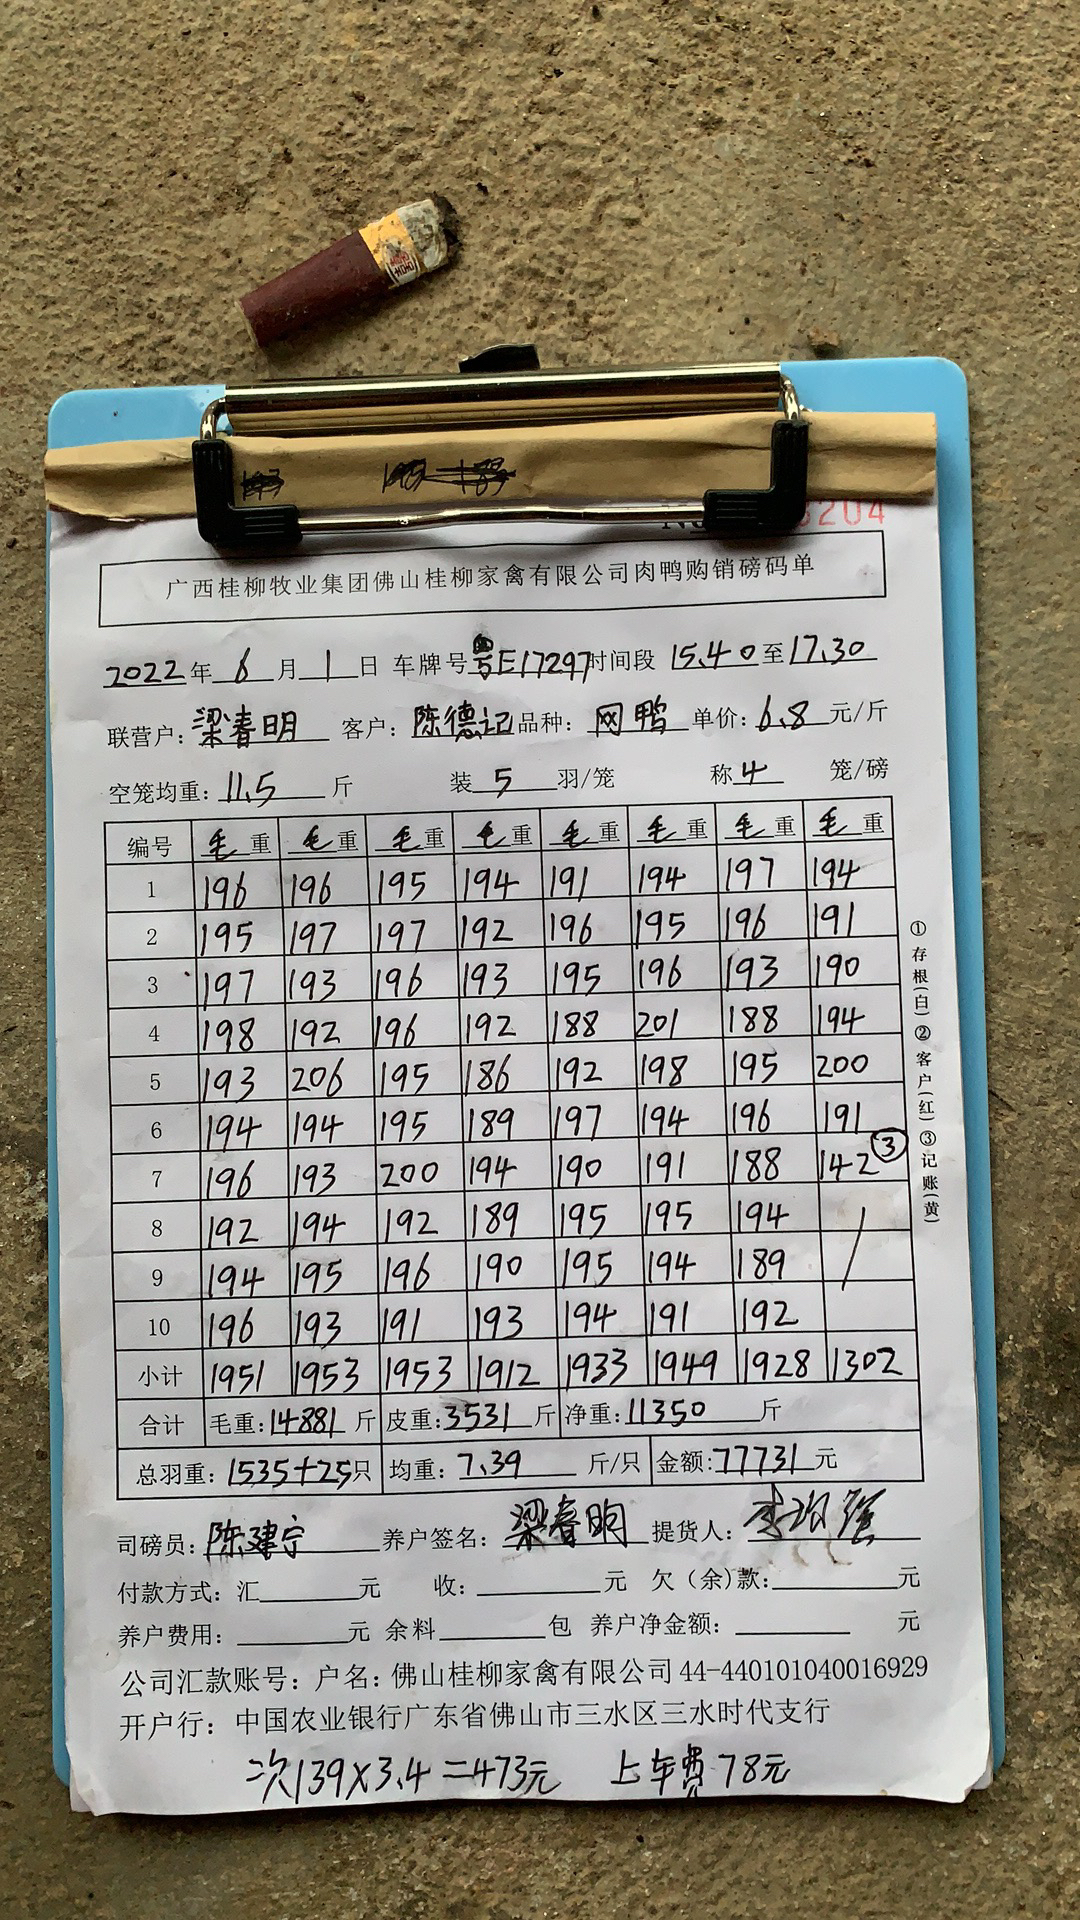 3204
广西桂柳牧业集团佛山桂柳家禽有限公司肉鸭购销磅码单
2022年6月1日 车牌号粤E17297时间段 15.40至17.30
联营户:梁春明 客户:陈德记 品种:网鸭 单价:6.8元/斤
空笼均重:11.5斤 装5羽/笼 称4笼/磅
编号 毛重 毛重 毛重 毛重 毛重 毛重 毛重 毛重
1 196 196 195 194 191 194 197 194
2 195 197 197 192 196 195 196 191
3 197 193 196 193 195 196 193 190
4 198 192 196 192 188 201 188 194
5 193 206 195 186 192 198 195 200
6 194 194 195 189 197 194 196 191
7 196 193 200 194 190 191 188 142 ③
8 192 194 192 189 195 195 194 /
9 194 195 196 190 195 194 189
10 196 193 191 193 194 191 192
小计 1951 1953 1953 1912 1933 1949 1928 1302
合计 毛重:14881斤 皮重:3531斤 净重:11350斤
总羽重:1535+25只 均重:7.39斤/只 金额:77731元
司磅员:陈建宁 养户签名:梁春明 提货人:
付款方式:汇____元 收:____元 欠(余)款:____元
养户费用:____元 余料____包 养户净金额:____元
公司汇款账号:户名:佛山桂柳家禽有限公司 44-440101040016929
开户行:中国农业银行广东省佛山市三水区三水时代支行
次139×3.4=473元 上车费78元
①存根(白)②客户(红)③记账(黄)